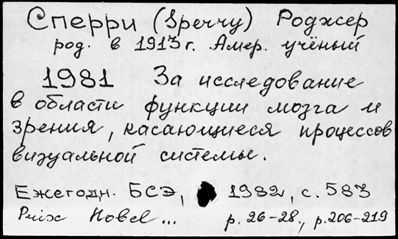 Сперри (Sperry) Роджер
род. в 1913 г. Амер. учёный
1981 За исследование
в области функции мозга и
зрения, касающиеся процессов
визуальной системы.
Ежегодн. БСЭ, 1982, с. 583
Prix Nobel... p. 26-28, p. 206-219